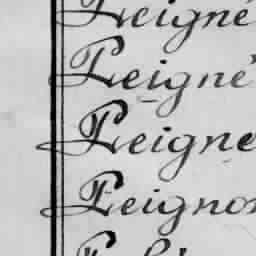 Peigné
Peigné
Peigne
Peignon